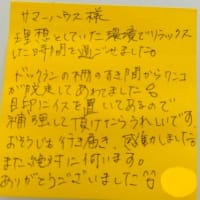 サマーハウス 様
理想としていた環境でリラックス
した時間を過ごせました。
ドックランの柵のすき間からワンコ
が脱走してあわてました。
目印にイスを置いてあるので
補強して頂けたらうれしいです
おそうじも行き届き、感動しました。
また絶対に伺います。
ありがとうございました